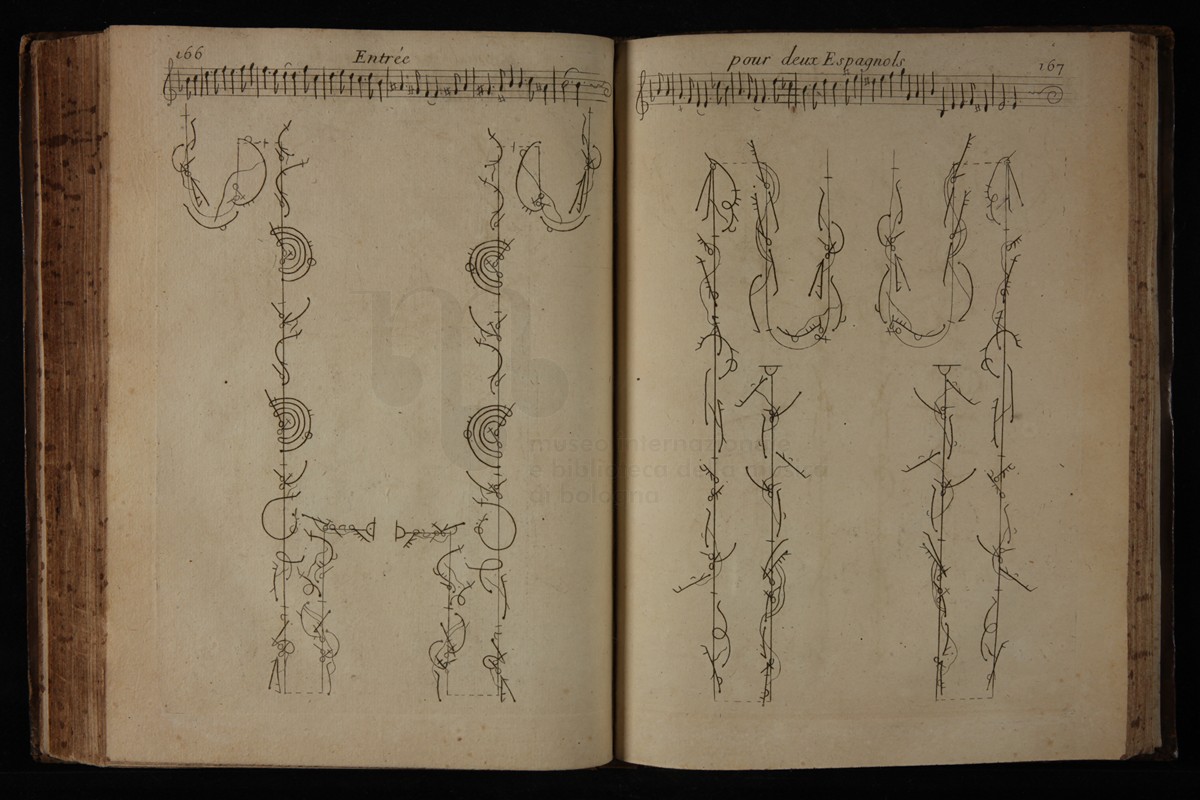 166
Entrée
pour deux Espagnols
167
museo internazionale
e biblioteca della musica
di bologna